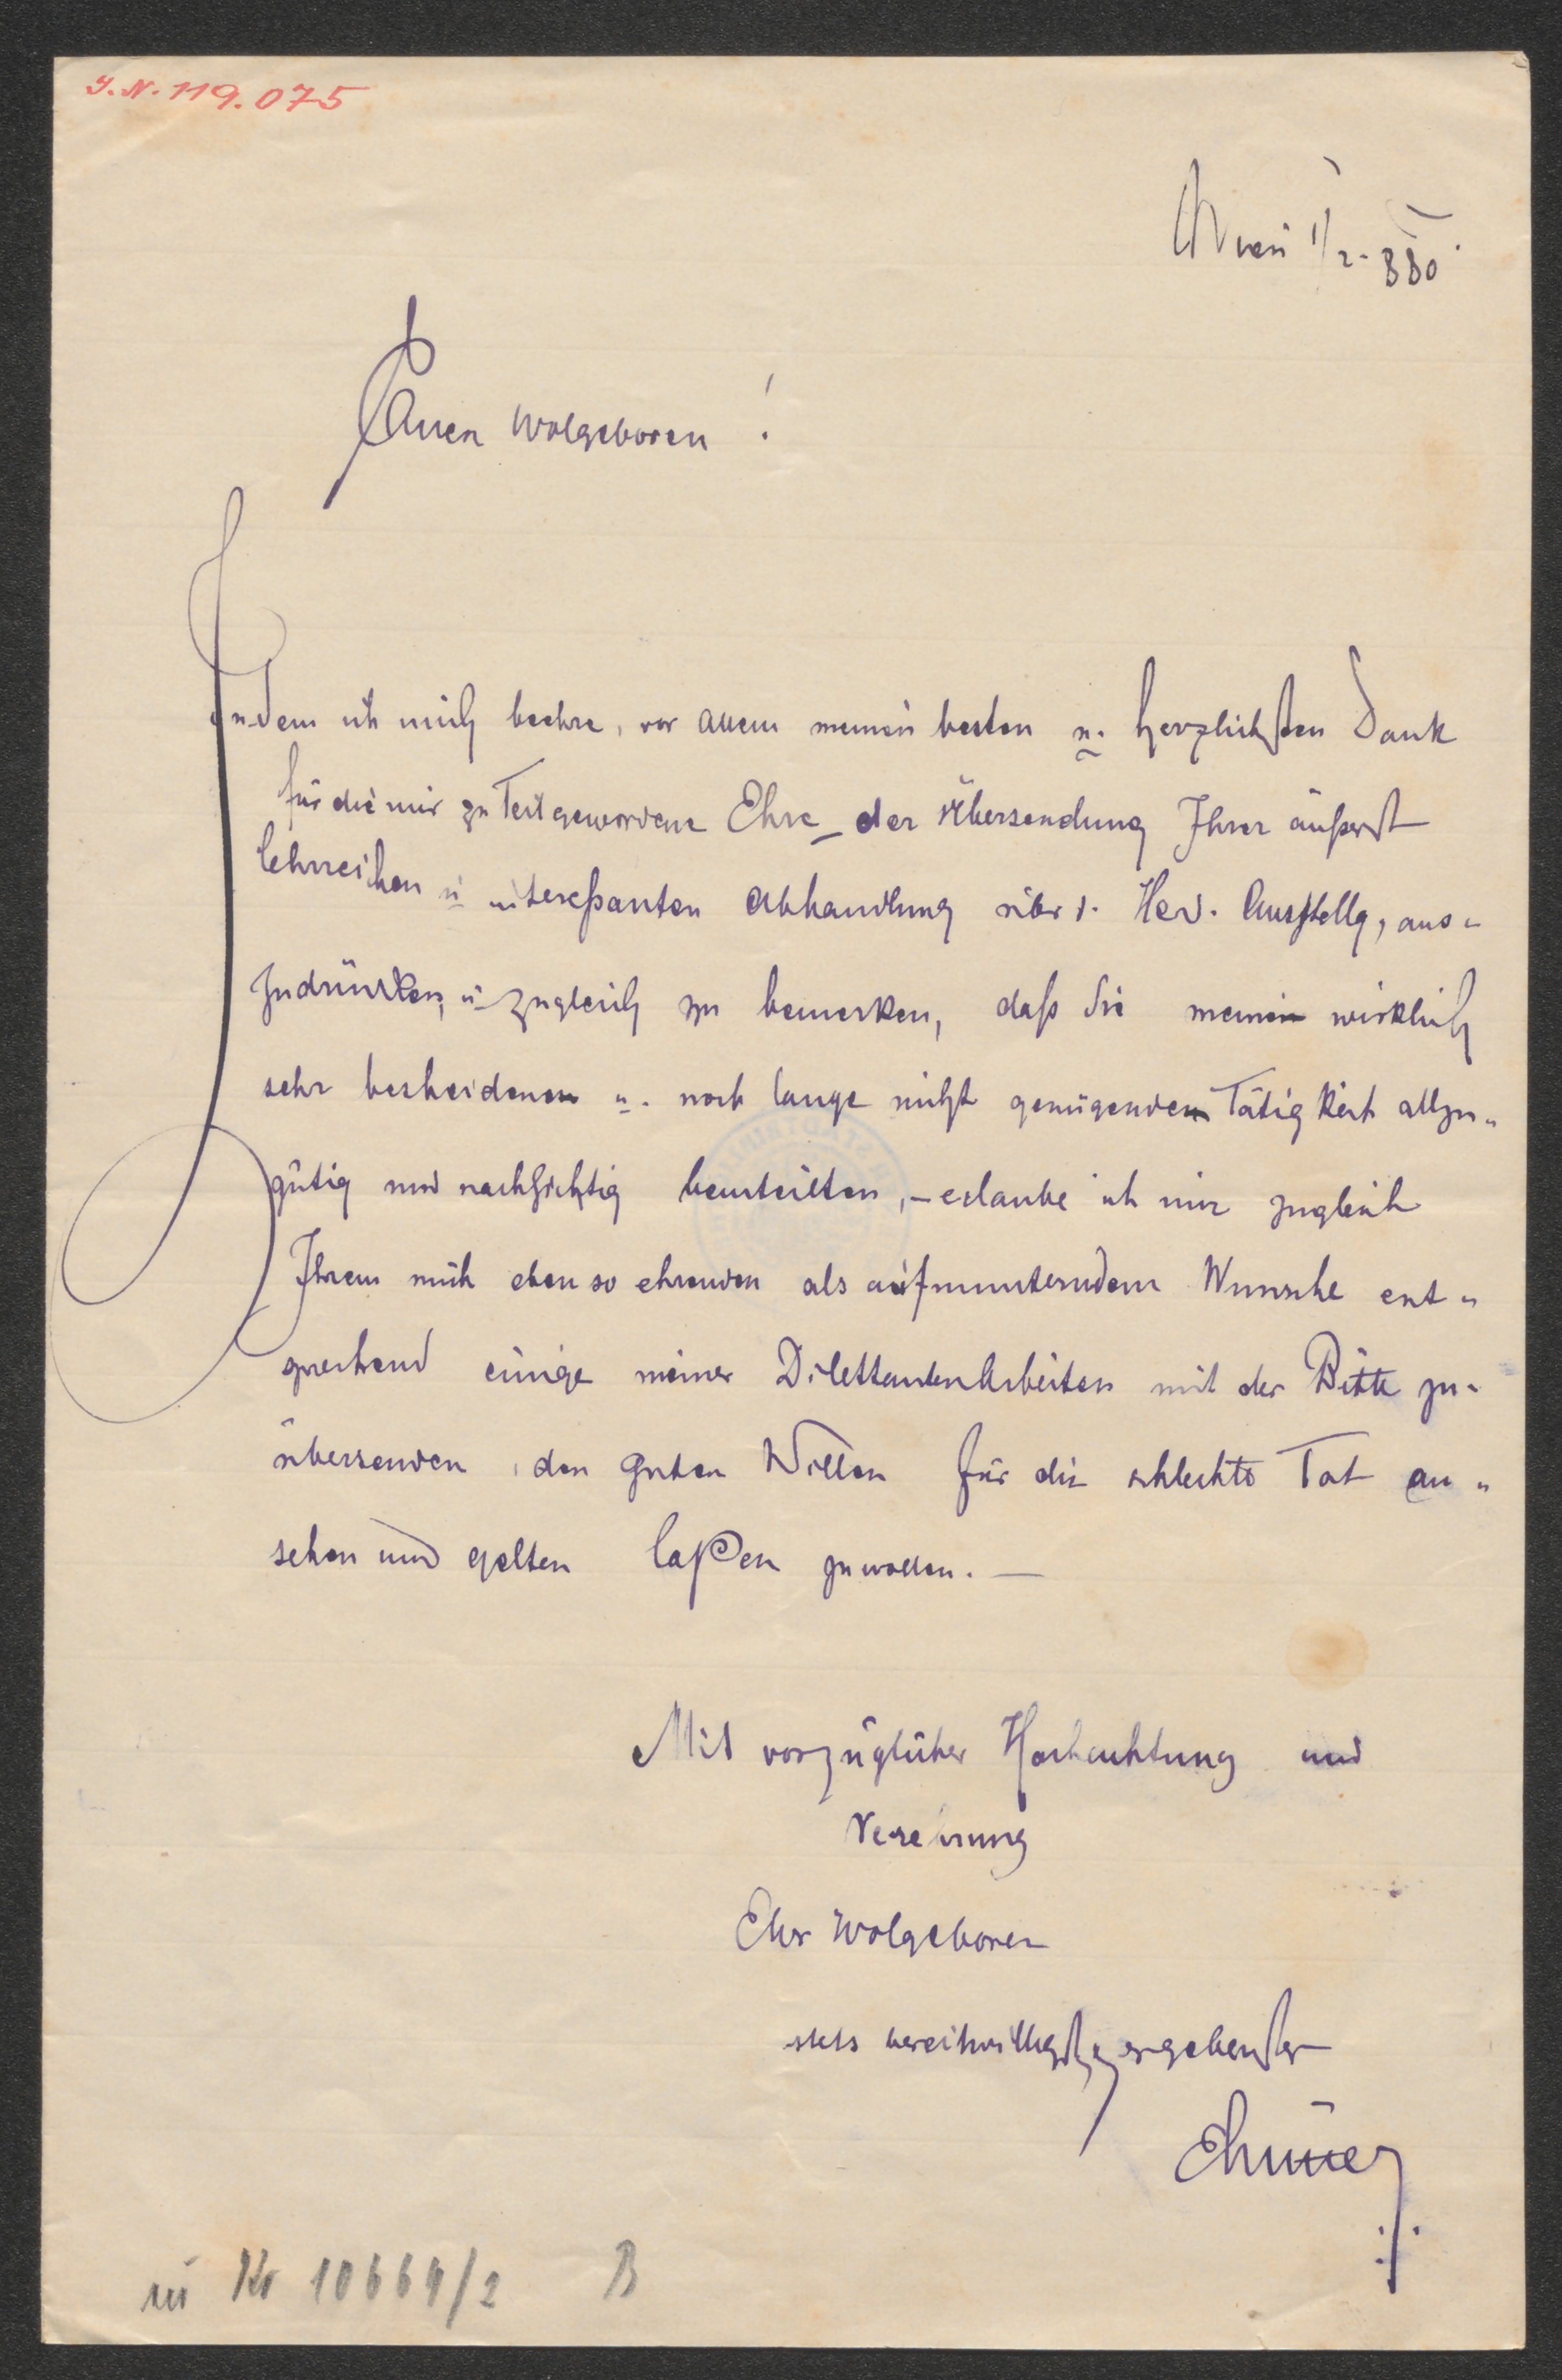 J. N. 119.075
Wien 1/2. 880.
Euer Wolgeboren!
Indem ich mich beehre, vor allem meinen besten u. herzlichsten Dank
für die mir zu Teil gewordene Ehre der Übersendung Ihrer äußerst
lehrreichen u interessanten Abhandlung über d. Her. Ausstellg, aus-
zudrücken, u zugleich zu bemerken, daß Sie meine wirklich
sehr bescheidene u. noch lange nicht genügende Tätigkeit allzu-
gütig und nachsichtig beurteilten, – erlaube ich mir zugleich
Ihrem mich ebenso ehrenden als aufmunterndem Wunsche ent-
sprechend einige meiner Dilettantenarbeiten mit der Bitte zu-
übersenden, den guten Willen für die schlechte Tat an-
sehen und gelten laßen zu wollen. –
Mit vorzüglicher Hochachtung und
Verehrung
Euer Wolgeboren
stets bereitwilligst ergebenster
in Nr 10664/2 B